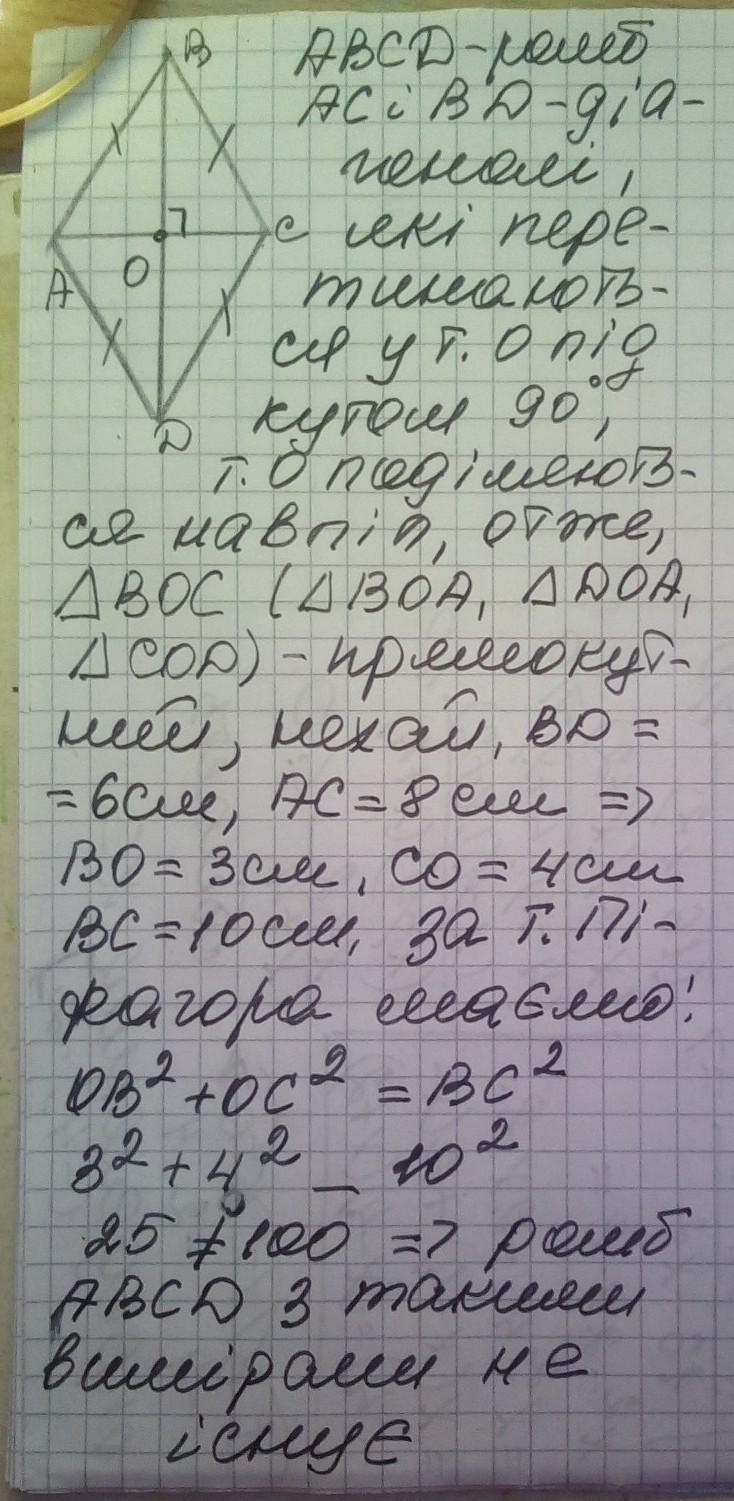 B
A
O
C
D
ABCD-ромб
AC і BD-діа-
гоналі,
які пере-
тинають-
ся у т. О під
кутом 90°,
т. О поділяють-
ся навпіл, отже,
△BOC (△BOA, △DOA,
△COD) - прямокут-
ний, нехай, BD =
= 6 см, AC = 8 см =>
BO = 3 см, CO = 4 см
BC = 10 см, за т. Пі-
фагора маємо:
OB² + OC² = BC²
3² + 4² _ 10²
25 ≠ 100 => ромб
ABCD з такими
вимірами не
існує